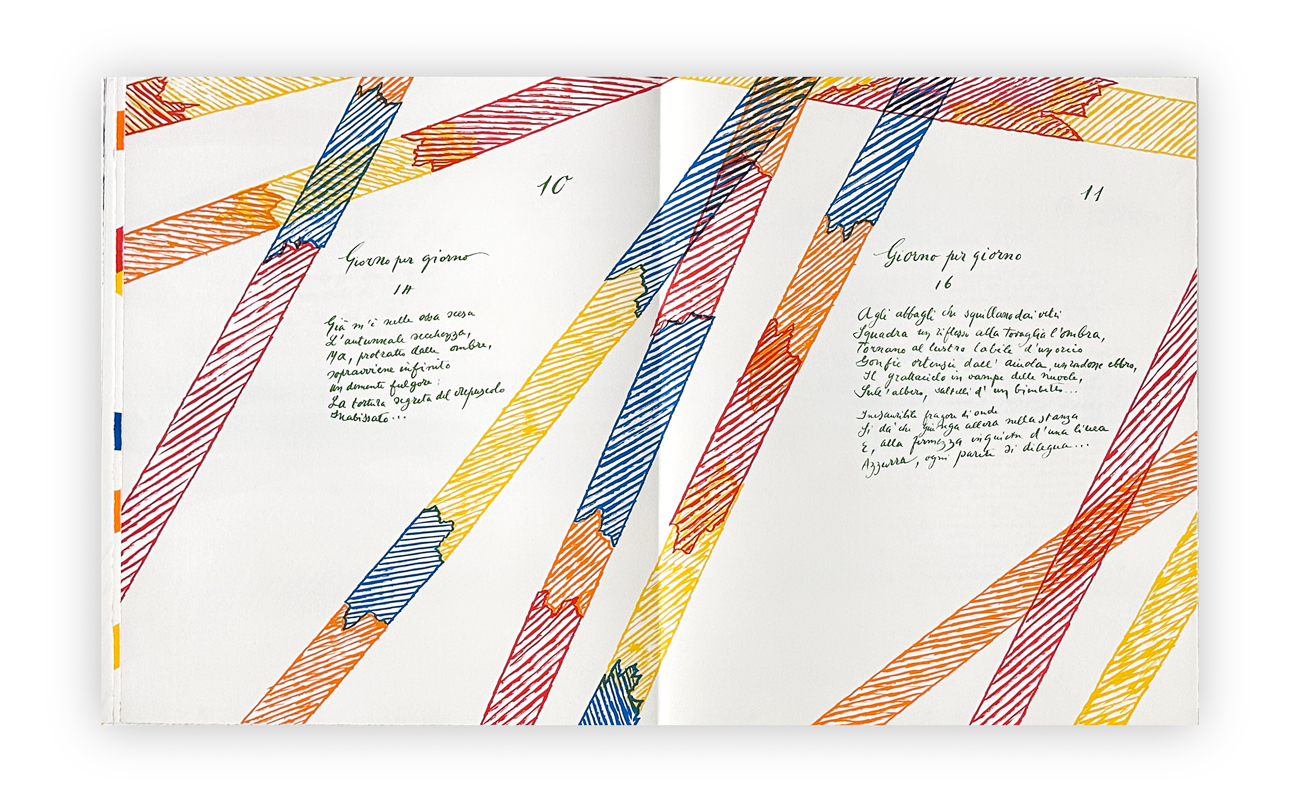 10
Giorno per giorno
14
Già m'è nelle ossa scesa
L'autunnale secchezza,
Ma, protratto dalle ombre,
sopravviene infinito
un demente fulgore:
La tortura segreta del crepuscolo
Inabissato...
11
Giorno per giorno
16
Agli abbagli che squillano dai vetri
Squadra un riflesso alla tovaglia l'ombra,
Tornano al lustro labile d'un orcio
Gonfie ortensie dall'aiuola, un rondone ebbro,
Il grattacielo in vampe delle nuvole,
Sull'albero, saltelli d'un bimbetto...
Inesauribile fragore di onde
Si dà che giunga allora nella stanza
E, alla fermezza inquieta d'una linea
Azzurra, ogni parete si dilegua...